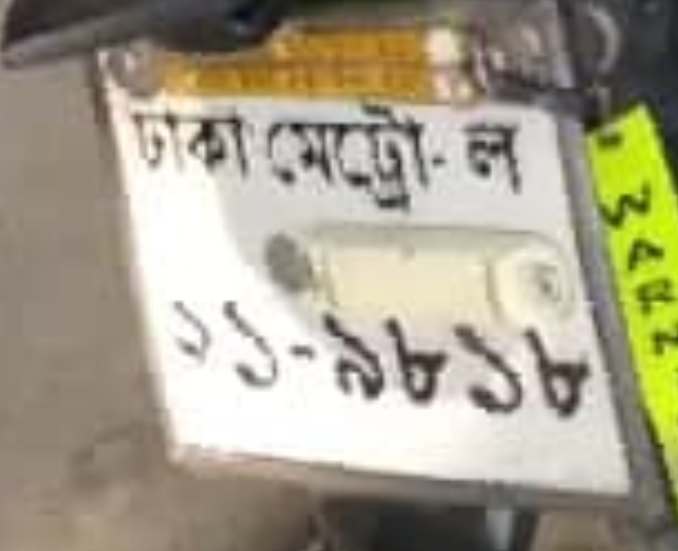 ঢাকা মেট্রো- ল
১১-৯৮১৮
WARN